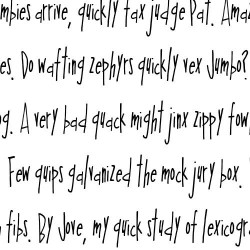 mbies arrive, quickly fax judge Pat. Amaz
es. Do wafting zephyrs quickly vex Jumbo?
g. A very bad quack might jinx zippy fow
Few quips galvanized the mock jury box.
fibs. By Jove, my quick study of lexicogra